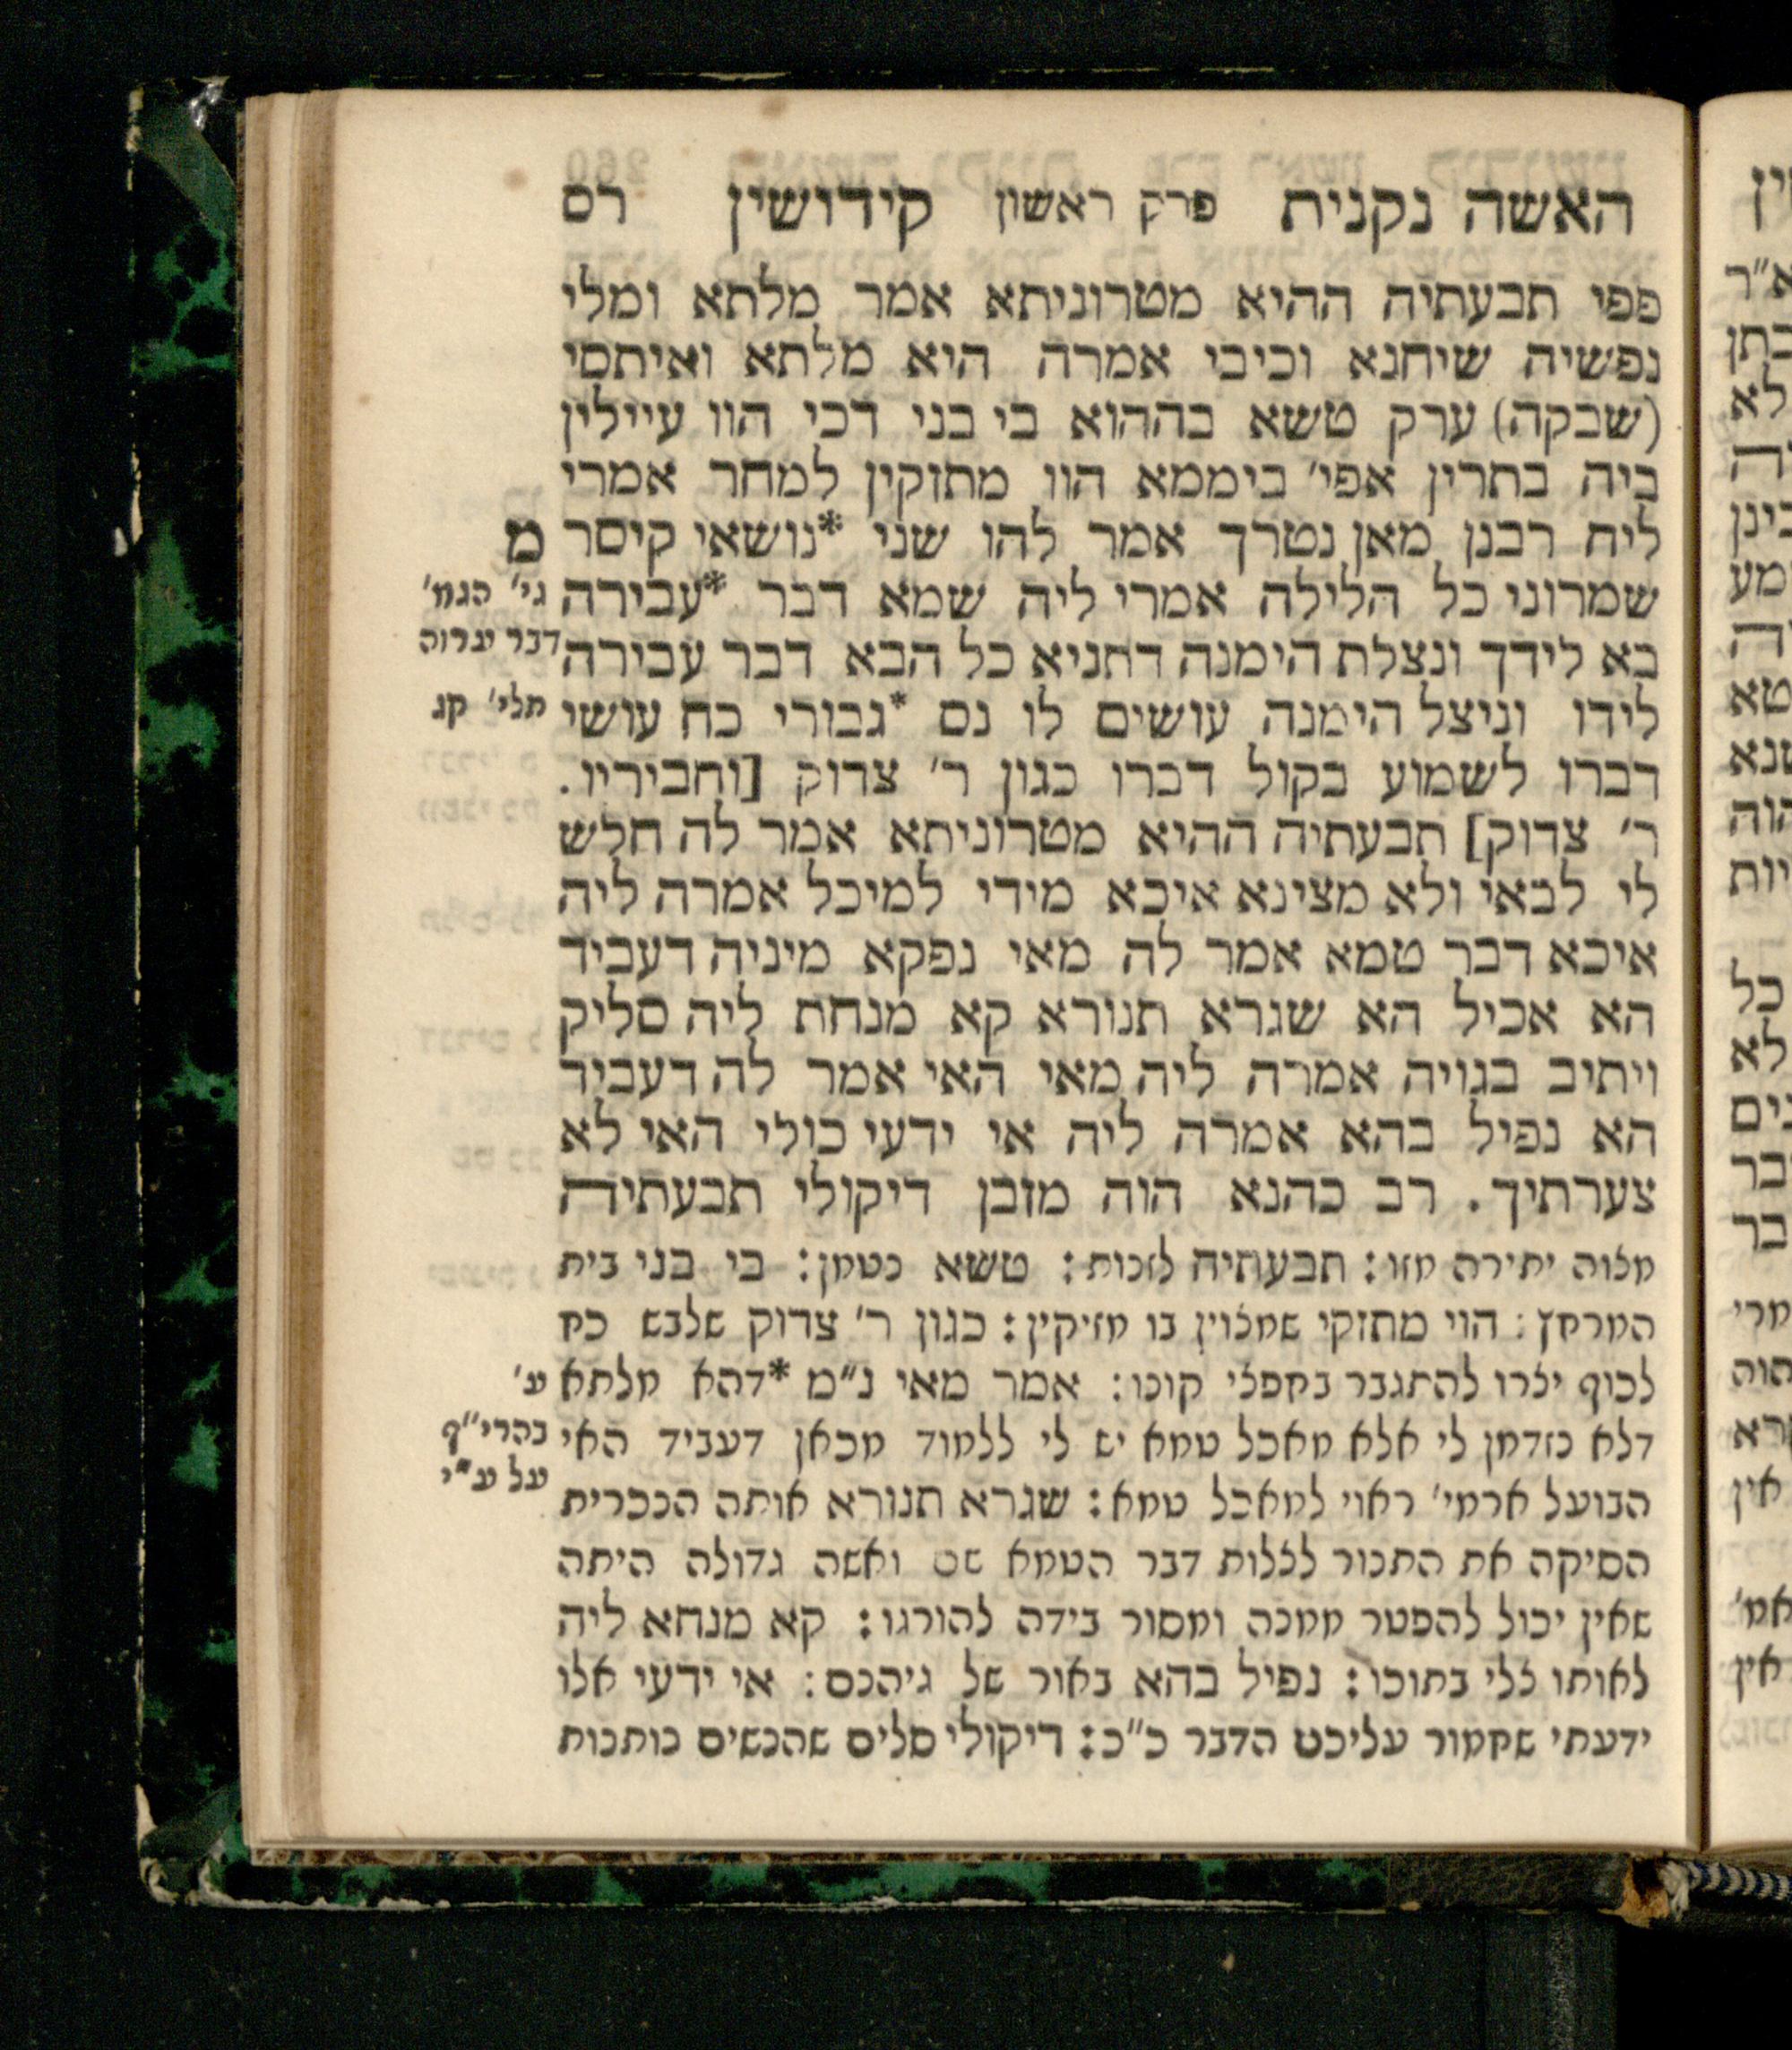 האשה נקנית פרק ראשון קידושין רס
פפי תבעתיה ההיא מטרוניתא אמר מלתא ומלי
נפשיה שיחנא וכיבי אמרה היא מלתא ואיתסי
(שבקה) ערק טשא בההוא בי בני דכי הוו עיילין
ביה בתרין אפי׳ ביממא הוו מתזקין למחר אמרי
ליה רבנן מאן נטרך אמר להו שני *נושאי קיסר
מ
שמרוני כל הלילה אמרי ליה שמא דבר *עבירה
גי׳ הגמ׳
דבר ערוה
בא לידך ונצלת הימנה דתניא כל הבא דבר עבירה
לידו וניצל הימנה עושים לו נס *גבורי כח עושי
תלי׳ קג
דברו לשמוע בקול דברו כגון ר׳ צדוק [וחביריו.
ר׳ צדוק] תבעתיה ההיא מטרוניתא אמר לה חלש
לי לבאי ולא מצינא איכא מידי למיכל אמרה ליה
איכא דבר טמא אמר לה מאי נפקא מיניה דעביד
הא אכיל הא שגרא תנורא קא מנחת ליה סליק
ויתיב בגויה אמרה ליה מאי האי אמר לה דעביד
הא נפיל בהא אמרה ליה אי ידעי כולי האי לא
צערתיך. רב כהנא הוה מזבן דיקולי תבעתיה
מצוה יתירה מזו: תבעתיה לזנות: טשא נטמן: בי בני בית
המרחץ: הוי מתזקי שמצוין בו מזיקין: כגון ר׳ צדוק שלבש כח
לכוף יצרו להתגבר בחפצי קונו: אמר מאי נ״מ *דהא מלתא
ע׳
בהרי״ף
על ע״י
דלא נזדמן לי אלא מאכל טמא יש לי ללמוד מכאן דעביד האי
הבועל ארמי׳ ראוי למאכל טמא: שגרא תנורא אותה הנכרית
הסיקה את התנור לצלות דבר הטמא שם ואשה גדולה היתה
שאין יכול להפטר ממנה ומסור בידה להורגו: קא מנחא ליה
לאותו צלי בתוכו: נפיל בהא באור של גיהנם: אי ידעי אלו
ידעתי שחמור עליכם הדבר כ״כ: דיקולי סלים שהנשים נותנות